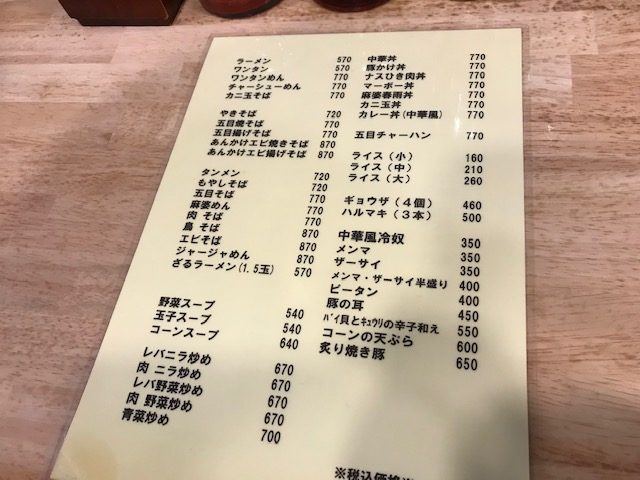 ラーメン 570
ワンタン 570
ワンタンめん 770
チャーシューめん 770
カニ玉そば 770
やきそば 720
五目焼そば 770
五目揚げそば 770
あんかけエビ焼きそば 870
あんかけエビ揚げそば 870
タンメン 720
もやしそば 720
五目そば 770
麻婆めん 770
肉 そば 770
鳥 そば 770
エビそば 870
ジャージャめん 870
ざるラーメン(1.5玉) 570
野菜スープ 540
玉子スープ 540
コーンスープ 640
レバニラ炒め 670
肉 ニラ炒め 670
レバ野菜炒め 670
肉 野菜炒め 670
青菜炒め 700
中華丼 770
豚かけ丼 770
ナスひき肉丼 770
マーボー丼 770
麻婆春雨丼 770
カニ玉丼 770
カレー丼(中華風) 770
五目チャーハン 770
ライス(小) 160
ライス(中) 210
ライス(大) 260
ギョウザ(4個) 460
ハルマキ(3本) 500
中華風冷奴 350
メンマ 350
ザーサイ 350
メンマ・ザーサイ半盛り 400
ピータン 400
豚の耳 450
ﾊﾞｲ貝とｷｭｳﾘの辛子和え 550
コーンの天ぷら 600
炙り焼き豚 650
※税込価格